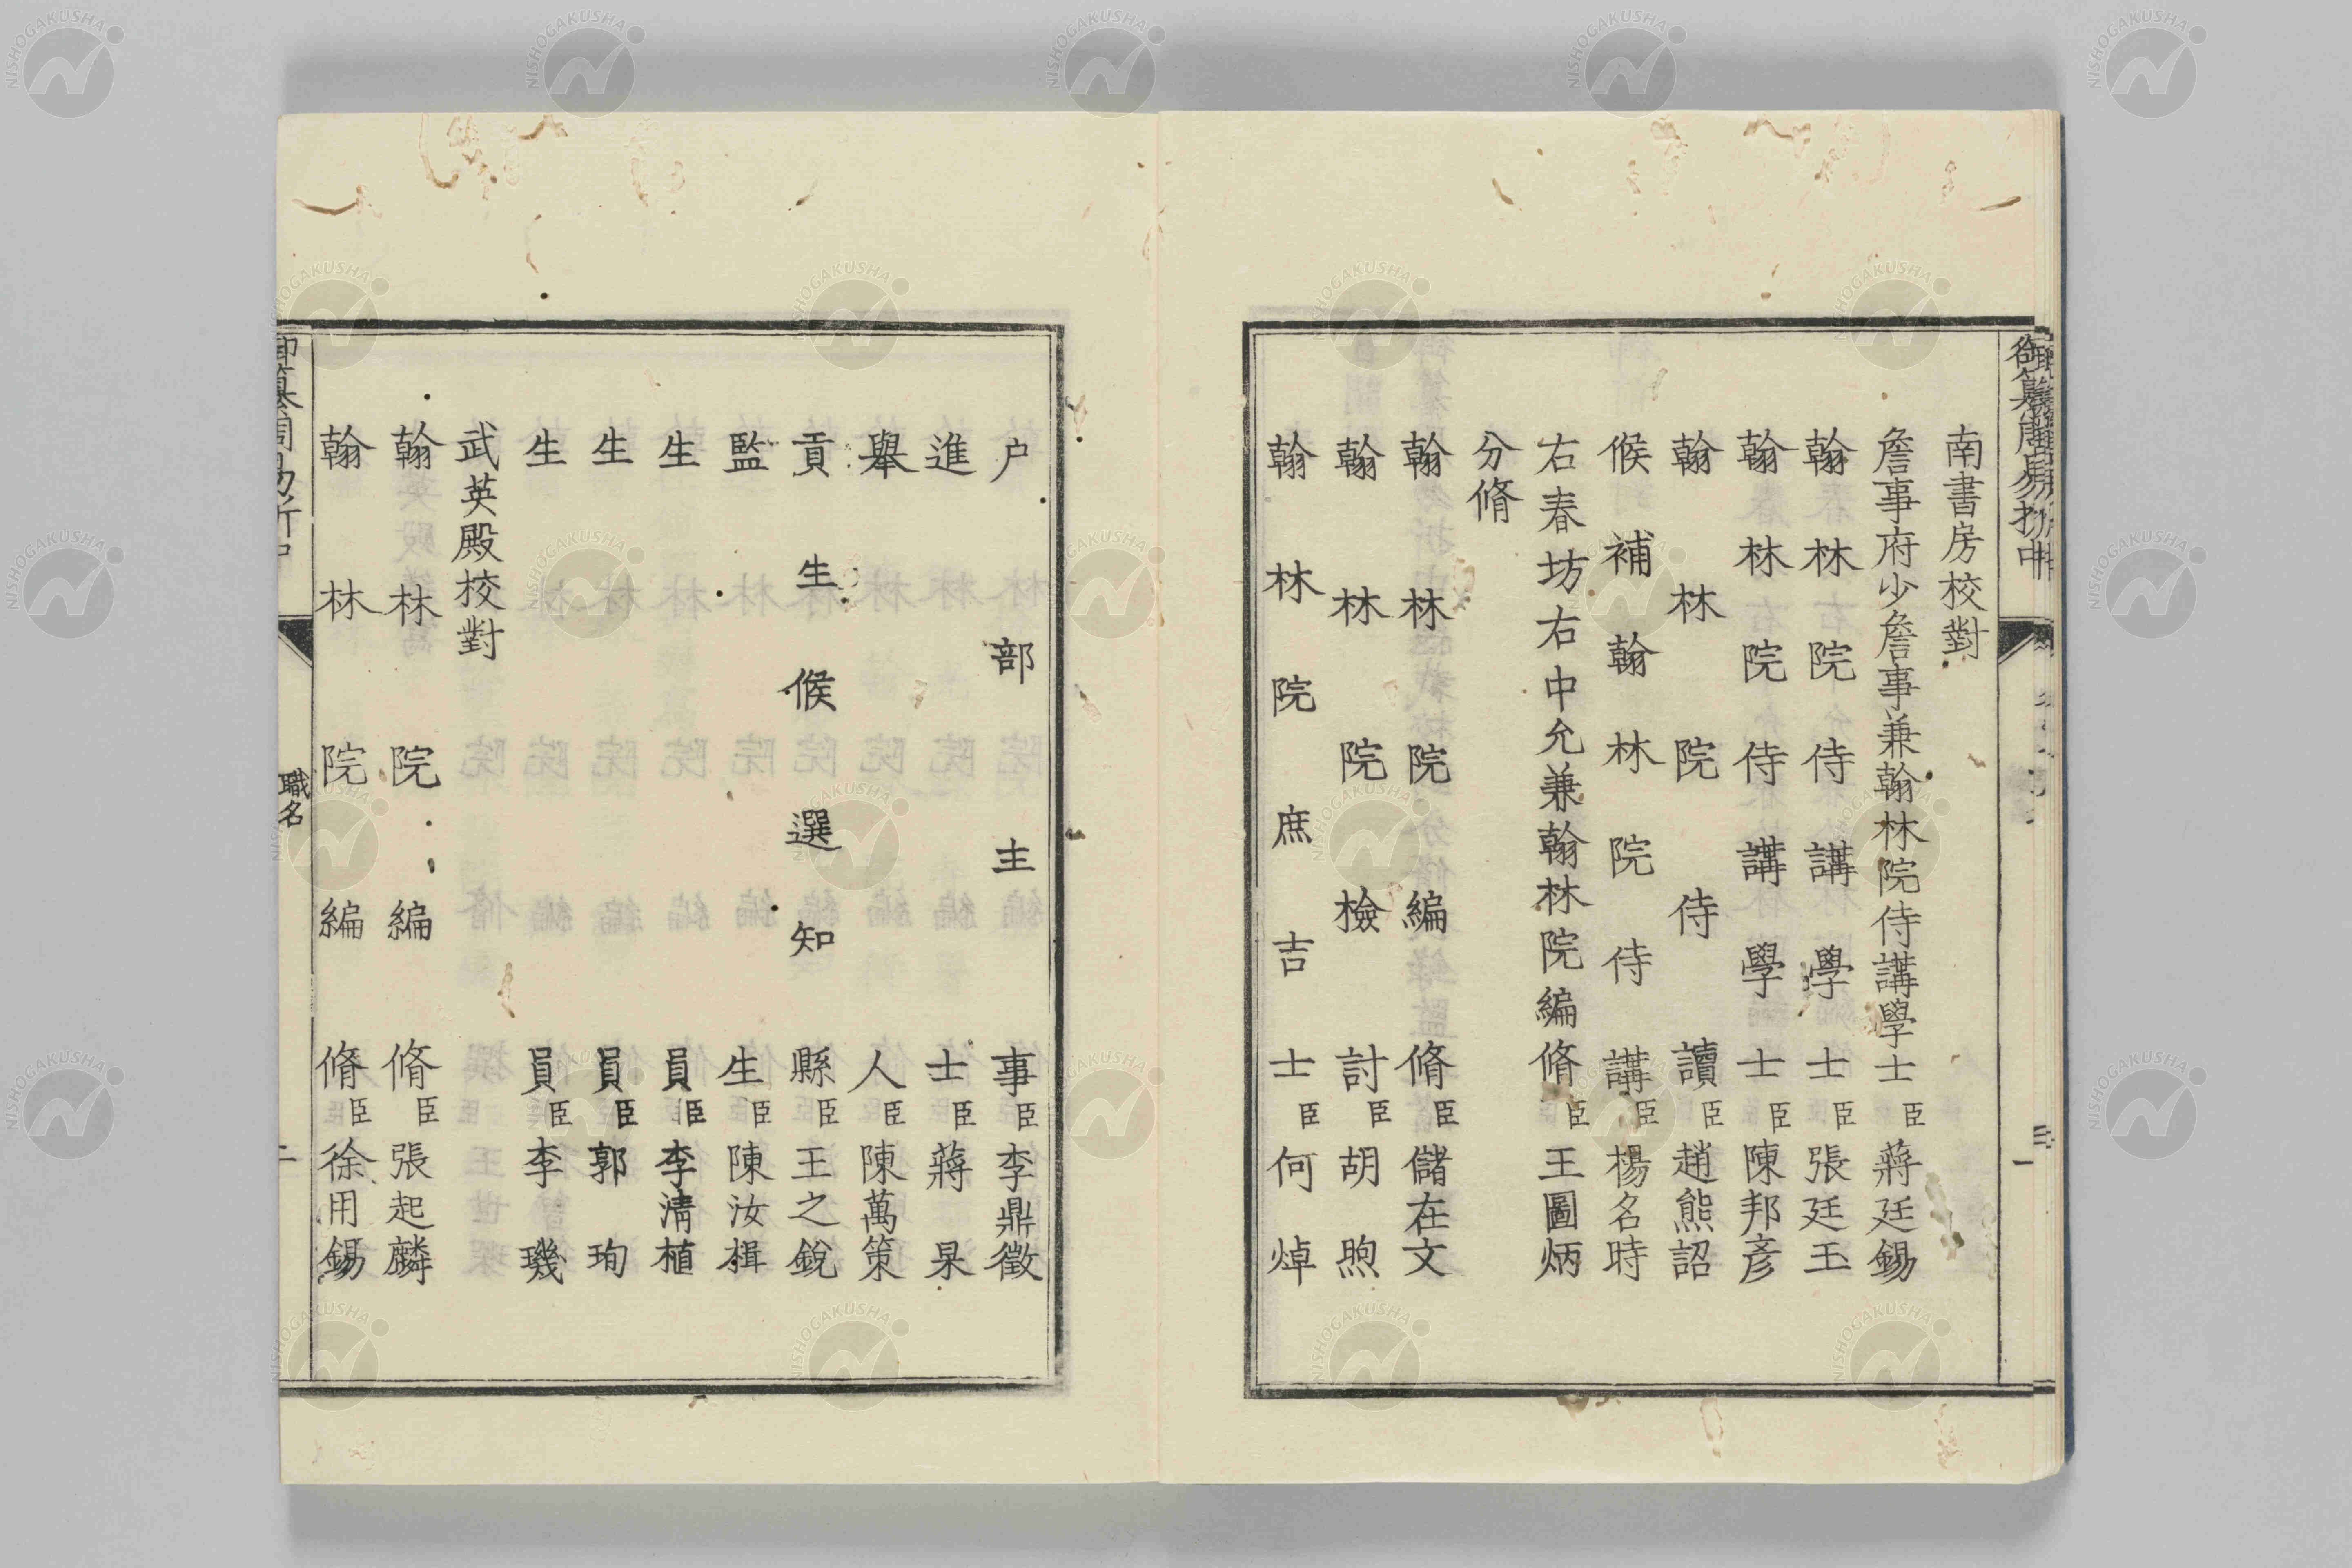 南書房校對
詹事府少詹事兼翰林院侍講學士臣蔣廷錫
翰林院侍講學士臣張廷玉
翰林院侍講學士臣陳邦彥
翰林院侍讀臣趙熊詔
候補翰林院侍講臣楊名時
右春坊右中允兼翰林院編脩臣王圖炳
分脩
翰林院編脩臣儲在文
翰林院檢討臣胡煦
翰林院庶吉士臣何焯
戶部主事臣李鼎徵
進士臣蔣杲
舉人臣陳萬策
貢生候選知縣臣王之銳
監生臣陳汝楫
生員臣李淸植
生員臣郭珣
生員臣李璣
武英殿校對
翰林院編脩臣張起麟
翰林院編脩臣徐用錫
職名
NISHOGAKUSHA